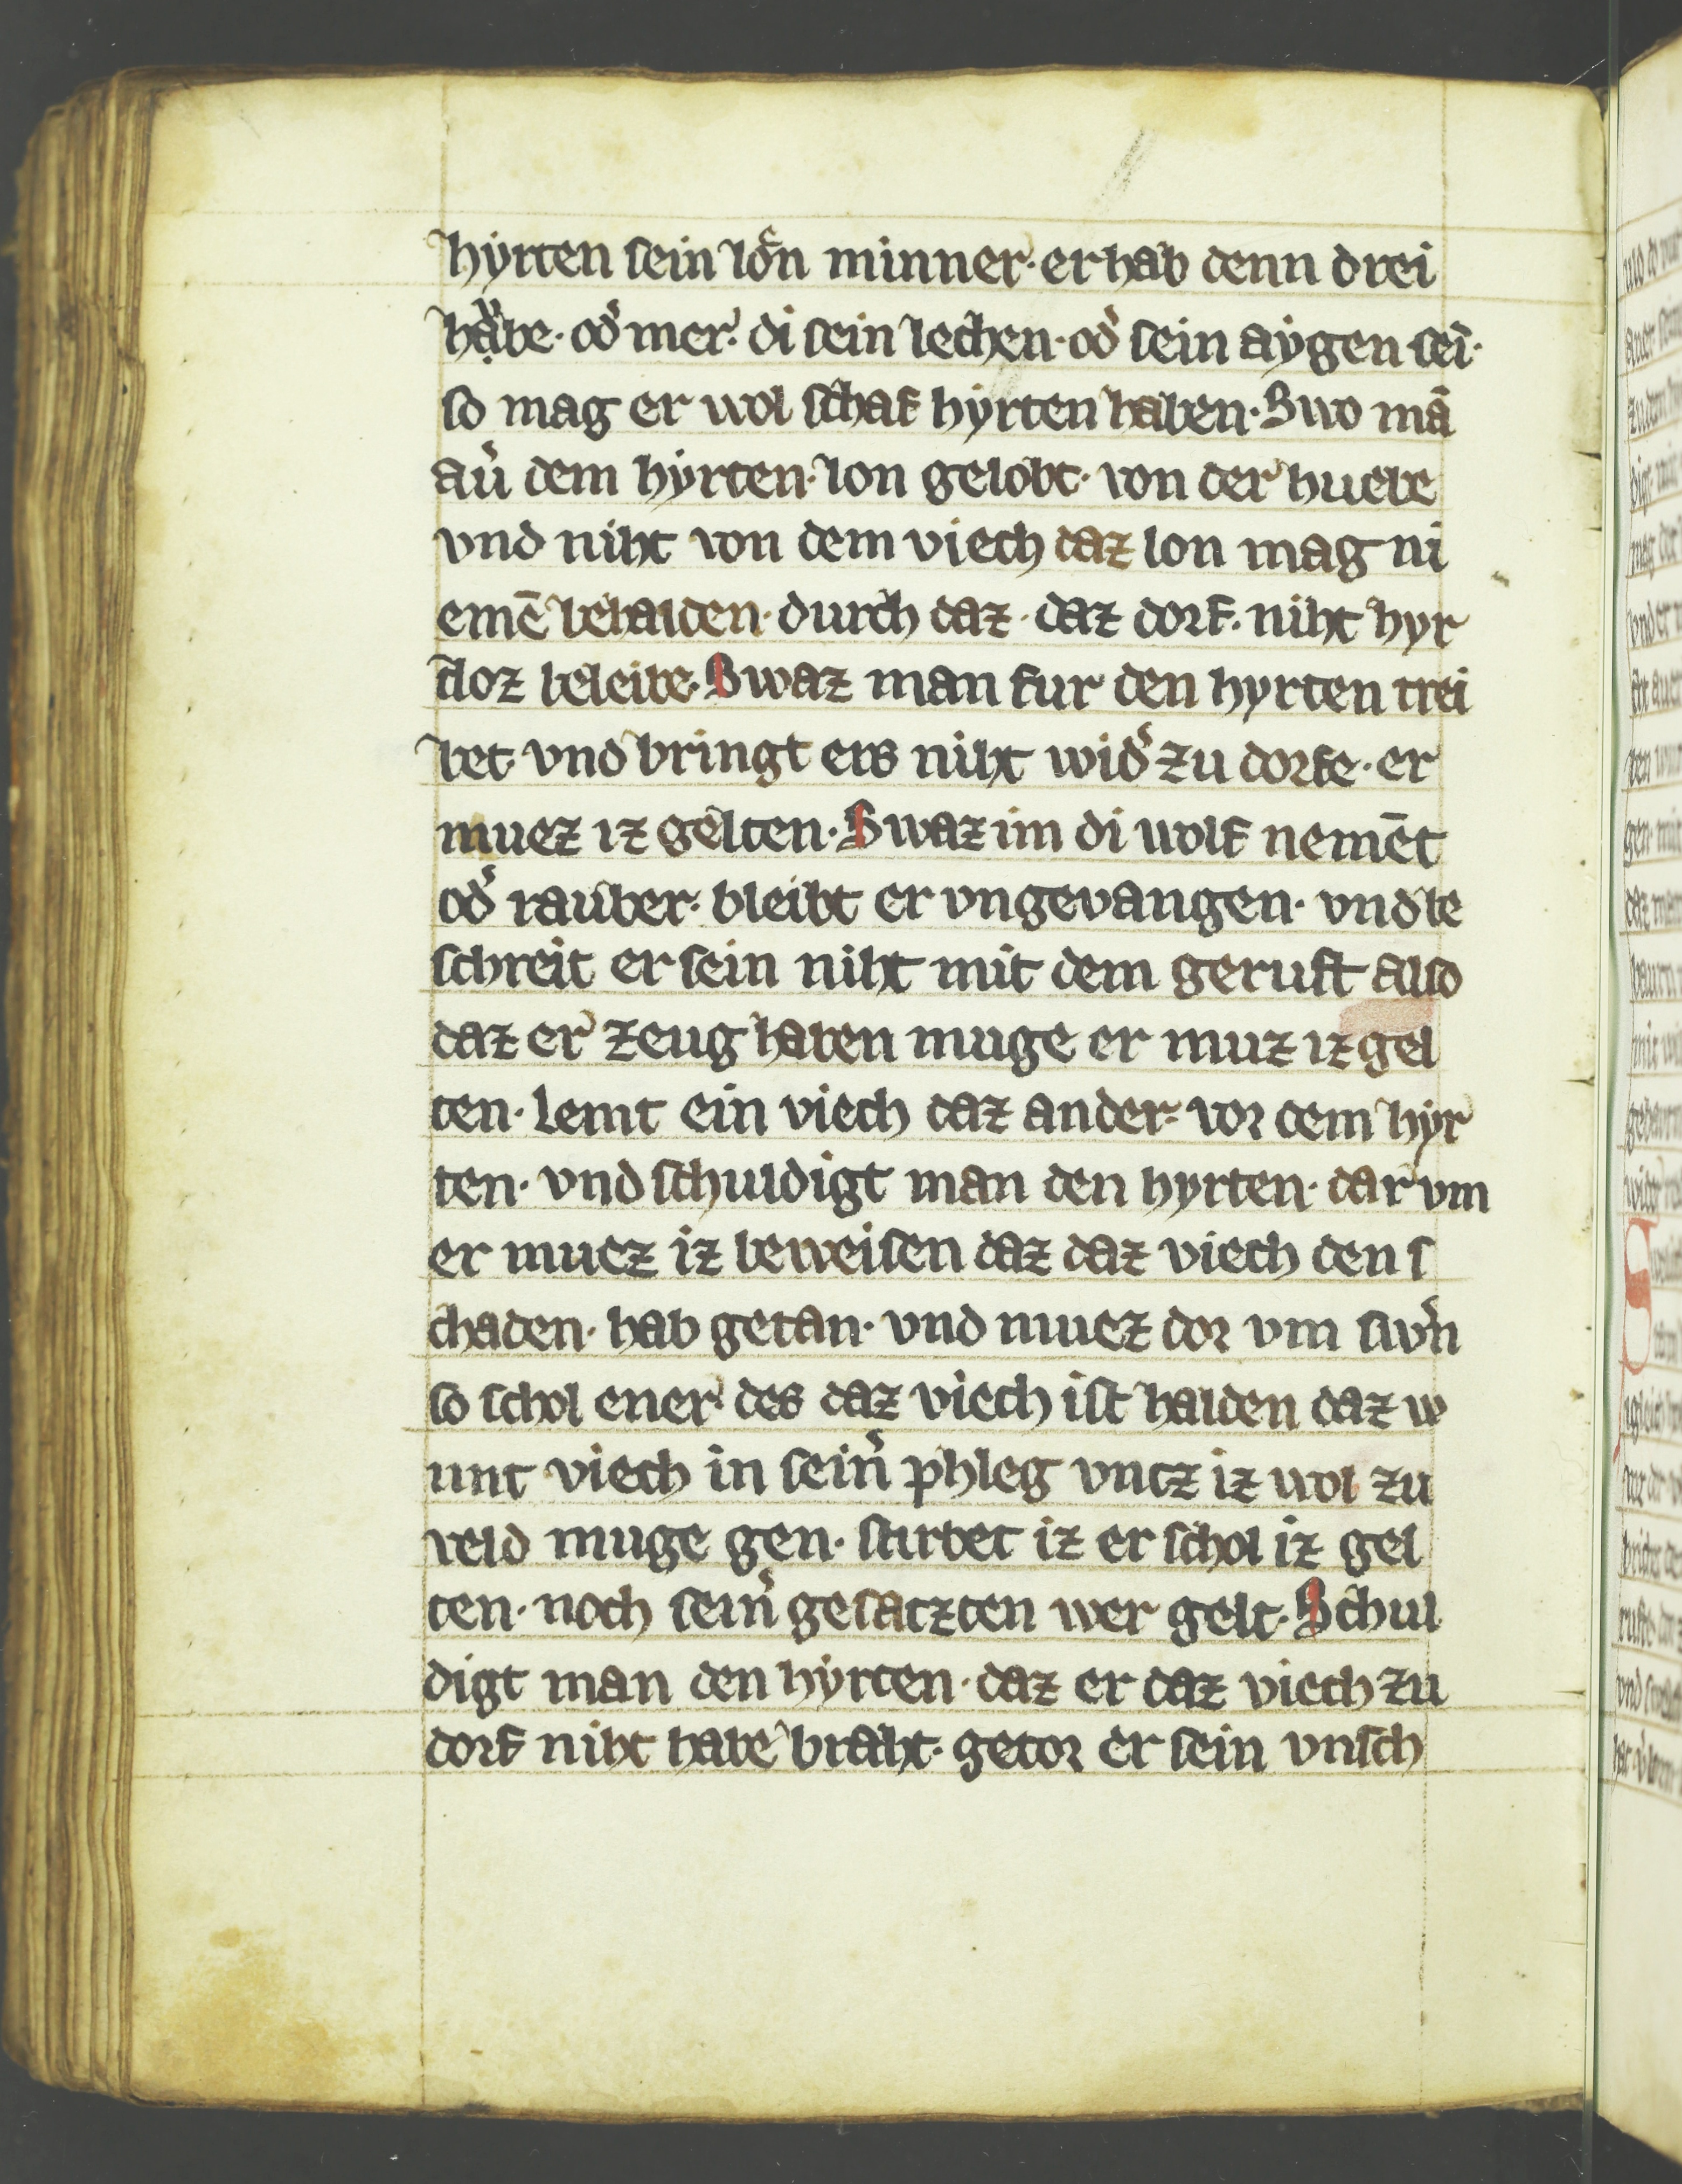 hẏrten sein lon minner· er hab denn drei
habe· od̾ mer· di sein lechen· od̾ sein aẏgen sei·
so mag er wol schaf hẏrten haben· Swo mā
au̾ dem hẏrten· lon gelobt· von der huebe
vnd niht von dem viech daz lon mag ni
emē behalden· durch daz· daz dorf· niht hyr
tloz beleibe· Swaz man fur den hyrten trei
bet· vnd bringt ers niht wid̾ zu dorfe· er
muez iz gelten· Swaz im di wolf nemēt
od̾ rauber· bleibt er vngevangen· vnd be
schreit er sein niht mit dem geruft also
daz er zeug haben muge er muz iz gel
ten· Lemt ein viech daz ander· vor dem hyr
ten· vnd schuldigt man den hyrten· dar vm
er muez iz beweisen daz daz viech den s
chaden· hab getan· vnd muez dor vm swͦn
so schol ener des daz viech ist halden daz w
unt viech in sein̾ phleg vntz iz wol zu
veld muge gen· stirbet iz er schol iz gel
ten· noch sein̾ gesatzten wer gelt· Schul
digt man den hẏrten· daz er daz viech zu
dorf niht habe braht· getor er sein vnsch